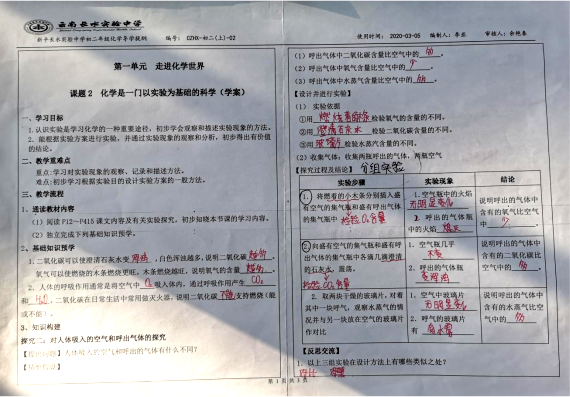 云南长水实验中学
新平长水实验中学初二年级化学导学提纲 编号：CZHX-初二(上)-02 使用时间：2020-03-05 编制人：李丞 审核人：余艳春
第一单元 走进化学世界
课题 2 化学是一门以实验为基础的科学（学案）
一、学习目标
1.认识实验是学习化学的一种重要途径，初步学会观察和描述实验现象的方法。
2. 能根据实验方案进行实验，并通过实验现象的观察和分析，初步得出有价值
的结论。
二、教学重难点
重点:学习对实验现象的观察、记录和描述方法。
难点:初步学习根据实验目的设计实验方案的一般方法。
三、教学流程
1. 通读教材内容
(1) 阅读 P12—P15 课文内容及有关实验探究，初步知晓本节课的学习内容。
(2) 独立完成下列基础知识预学。
2. 基础知识预学
1.二氧化碳可以使澄清石灰水变浑浊，白色浑浊越多，说明二氧化碳越多。
氧气可以使燃烧的木条燃烧更旺。木条燃烧越旺，说明氧气的含量越多。
2. 人体的呼吸作用通常是将空气中O₂吸入体内，通过呼吸作用产生CO₂
和H₂O. 二氧化碳在日常生活中常用做灭火器，说明二氧化碳不能支持燃烧(能
或不能)。
3、知识构建
探究二：对人体吸入的空气和呼出气体的探究
【提出问题】人体吸入的空气和呼出的气体有什么不同？
(1) 呼出气体中二氧化碳含量比空气中的多。
(2) 呼出气体中氧气含量比空气中的少。
(3) 呼出气体中水蒸气含量比空气中的多。
【设计并进行实验】
(1) 实验依据
①用燃着的木条检验氧气的含量的不同。
②用澄清石灰水检验二氧化碳含量的不同。
③用玻璃片检验水蒸气含量的不同。
(2) 收集气体：收集两瓶呼出的气体，两瓶空气
【探究过程及结论】 分组实验
实验步骤 实验现象 结论
1. 将燃着的小木条分别插入盛
有空气的集气瓶和盛有呼出气体
的集气瓶中 检验O₂含量
1.空气中的火焰
无明显变化
2. 呼出的气体瓶
中的火焰熄灭
说明呼出的气体中
含有的氧气比空气
中少。
2.向盛有空气的集气瓶和盛有呼
出气体的集气瓶中各滴几滴澄清
的石灰水，振荡。
检验CO₂含量
1. 空气瓶几乎
不变
2. 呼出的气体瓶
变浑浊
说明呼出的气体中
含有的二氧化碳比
空气中的多。
2. 取两块干燥的玻璃片，对着
其中一块呼气，观察水蒸气的情
况并与另一块放在空气的玻璃片
作对比
1. 空气中玻璃片
无明显变化
2. 呼气的玻璃片
有水雾
说明呼出的气体中
含有的水蒸气比空
气中的多
【反思交流】
1. 以上三组实验在设计方法上有哪些类似之处？
对比
第 1 页 共 3 页